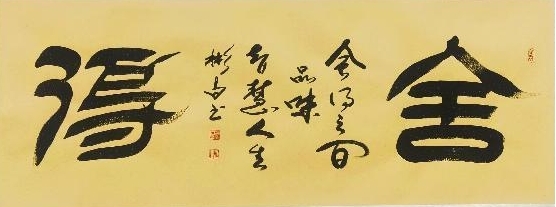 舍
舍得之间
品味
智慧人生
得